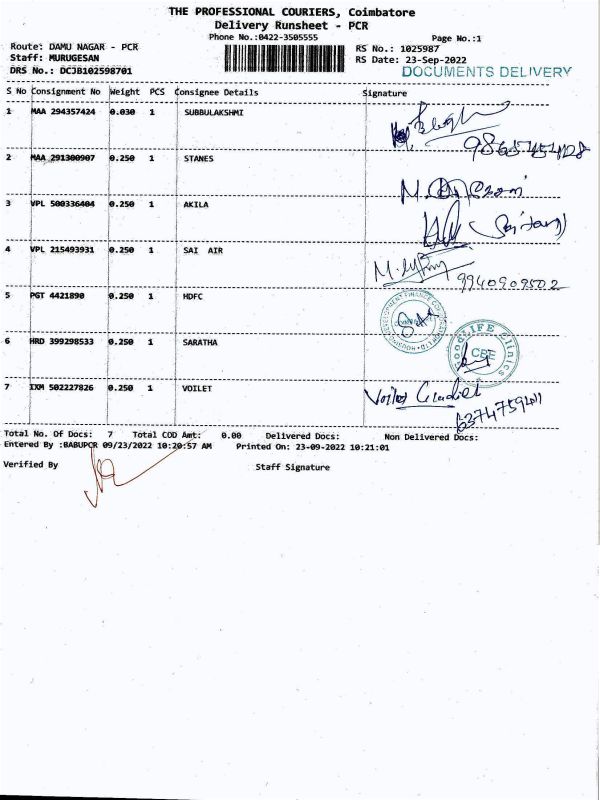 THE PROFESSIONAL COURIERS, Coimbatore
Delivery Runsheet - PCR
Phone No.:0422-3505555 Page No.:1
Route: DAMU NAGAR - PCR RS No.: 1025987
Staff: MURUGESAN RS Date: 23-Sep-2022
DRS No.: DCJB102598701 DOCUMENTS DELIVERY
S No Consignment No Weight PCS Consignee Details Signature
1 MAA 294357424 0.030 1 SUBBULAKSHMI
2 MAA 291300907 0.250 1 STANES
3 VPL 500336404 0.250 1 AKILA
4 VPL 215493931 0.250 1 SAI AIR
9940909502
5 PGT 4421890 0.250 1 HDFC
6 HRD 399298533 0.250 1 SARATHA
CBE
7 IXM 502227826 0.250 1 VOILET
Total No. Of Docs: 7 Total COD Amt: 0.00 Delivered Docs: Non Delivered Docs:
Entered By :BABUPCR 09/23/2022 10:20:57 AM Printed On: 23-09-2022 10:21:01
Verified By Staff Signature